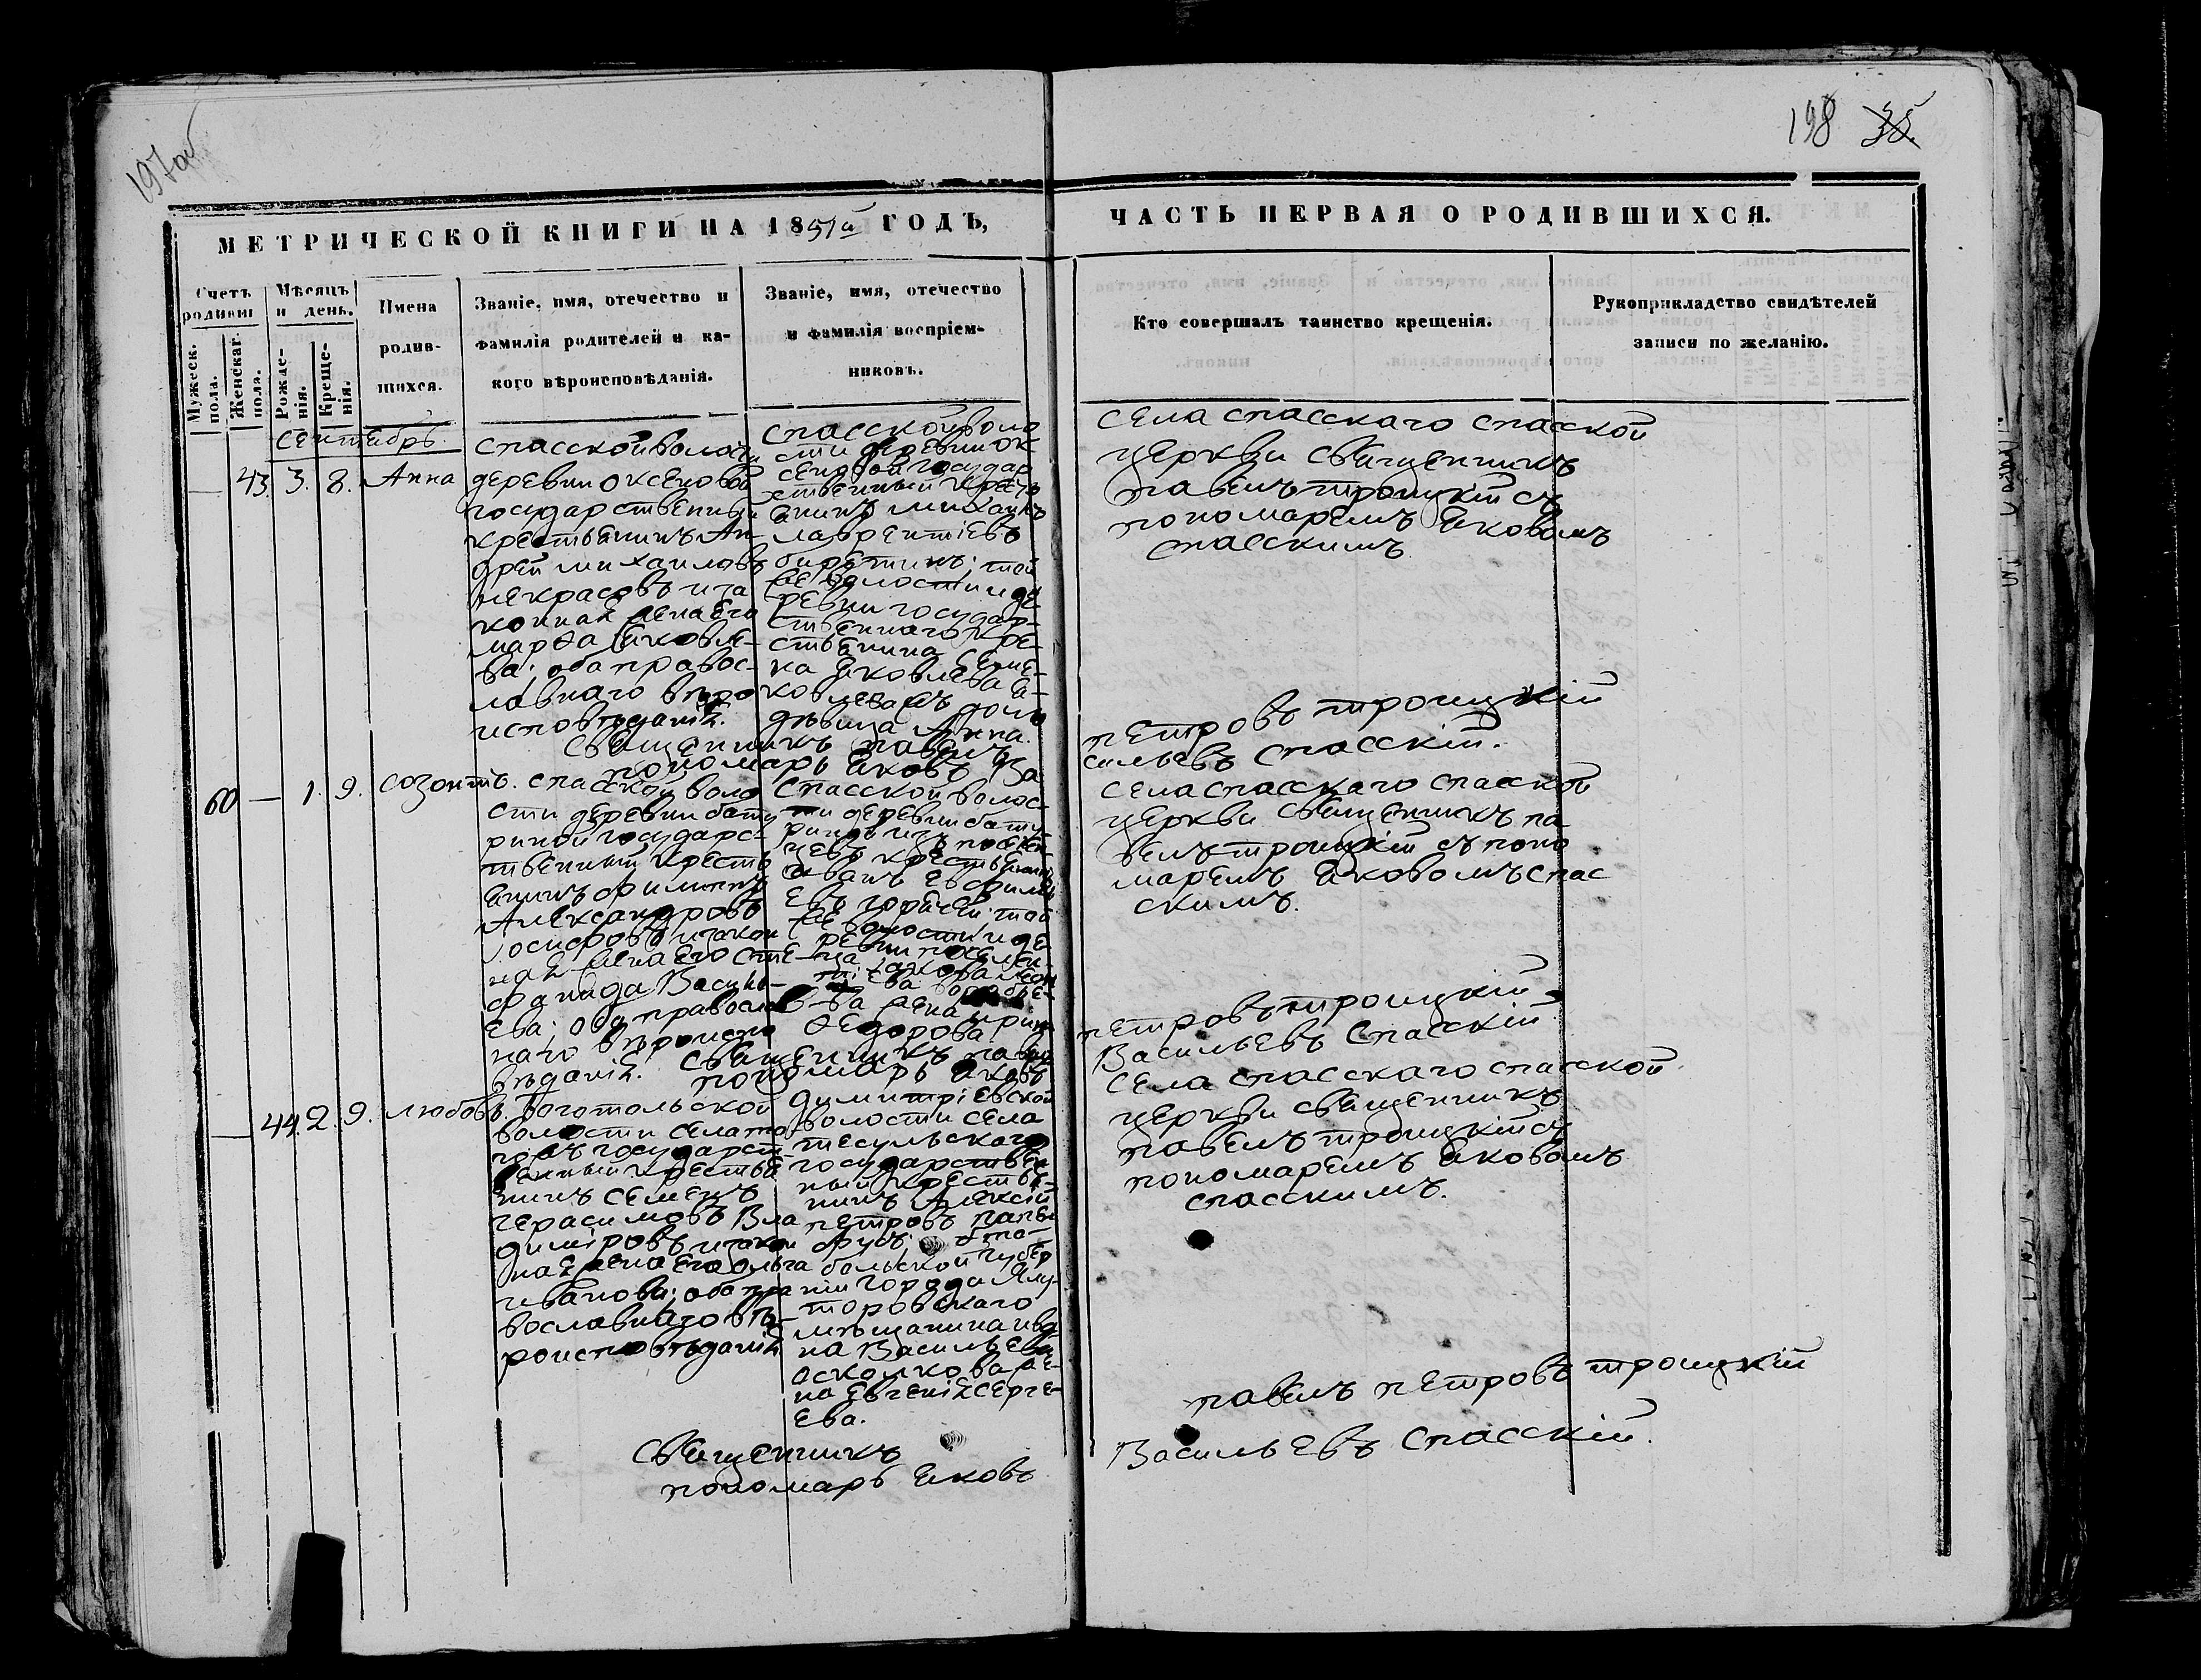 197об
198 35.
МЕТРИЧЕСКОЙ КНИГИ НА 1851й ГОДЪ,
ЧАСТЬ ПЕРВАЯ О РОДИВШИХСЯ.
Счетъ родивш
Мужеск. пола.
Женскаг. пола.
Мѣсяцъ и день.
Рожде- нія.
Креще- нія.
Имена
родив-
шихся.
Званіе, имя, отечество и
фамилія родителей и ка-
кого вѣроисповѣданія.
Званіе, имя, отечество
и фамилія воспріем-
никовъ.
Кто совершалъ таинство крещенія.
Рукоприкладство свидѣтелей
записи по желанію.
сентябрь.
— 43. 3. 8. Анна
спасской волости
деревни оксеновой
государственный
крестьянинъ Ан-
дрей михаиловъ
некрасовъ и за
конная жена его
марѳа яковле-
ва; оба правос-
лавнаго вѣро
исповѣданія.
спасской воло
сти деревни ок
сеновой государ
ственный кресть
янинъ михаилъ
лаврентіевъ
биретинъ; той
же волости и де
ревни государ-
ственнаго кре-
стьянина
на яковлева я-
ковлева дочь
дѣвица Анна.
села спасскаго спасской
церкви священникъ
павелъ троицкій съ
пономаремъ яковомъ
спасскимъ.
священникъ павелъ петровъ троицкій
пономарь яковъ Ва сильевъ спасскій.
60 — 1. 9. созонтъ.
спасской воло
сти деревни бату
риной государс-
твенный кресть
янинъ филиппъ
Александровъ
осиповъ и закон
ная жена его сте-
фанида Василь-
ева; оба правосла
наго вѣроиспо
вѣданія.
спасской волос-
ти деревни бату-
риной изъ поселен
цевъ крестьянинъ
иванъ евфимь
евъ горячей; той
же волости и де
ревни поселен-
ва жена ирин
ѳедорова.
села спасскаго спасской
церкви священникъ па
велъ троицкій съ поно
маремъ яковомъ спас
скимъ.
священникъ павелъ петровъ троицкій
пономарь яковъ Васильевъ спасскій.
— 44. 2. 9. любовь.
боготольской
волости села
государст
венный крестья
нинъ семенъ
герасимовъ Вла
димiровъ и закон
ная жена его ольга
иванова; оба пра
вославнаго вѣ-
роисповѣданія
димитріевской
волости села
тесульскаго
государствен
ный крестья-
нинъ Алексій
петровъ
то-
больской губер
ніи города Ялу-
торовскаго
мѣщанина ив
на Васильева
осколкова же-
на евгенія серге-
ева.
села спасскаго спасской
церкви священникъ
павелъ троицкій съ
пономаремъ яковомъ
спасскимъ.
священникъ павелъ петровъ троицкій
пономарь яковъ Васильевъ спасскій.